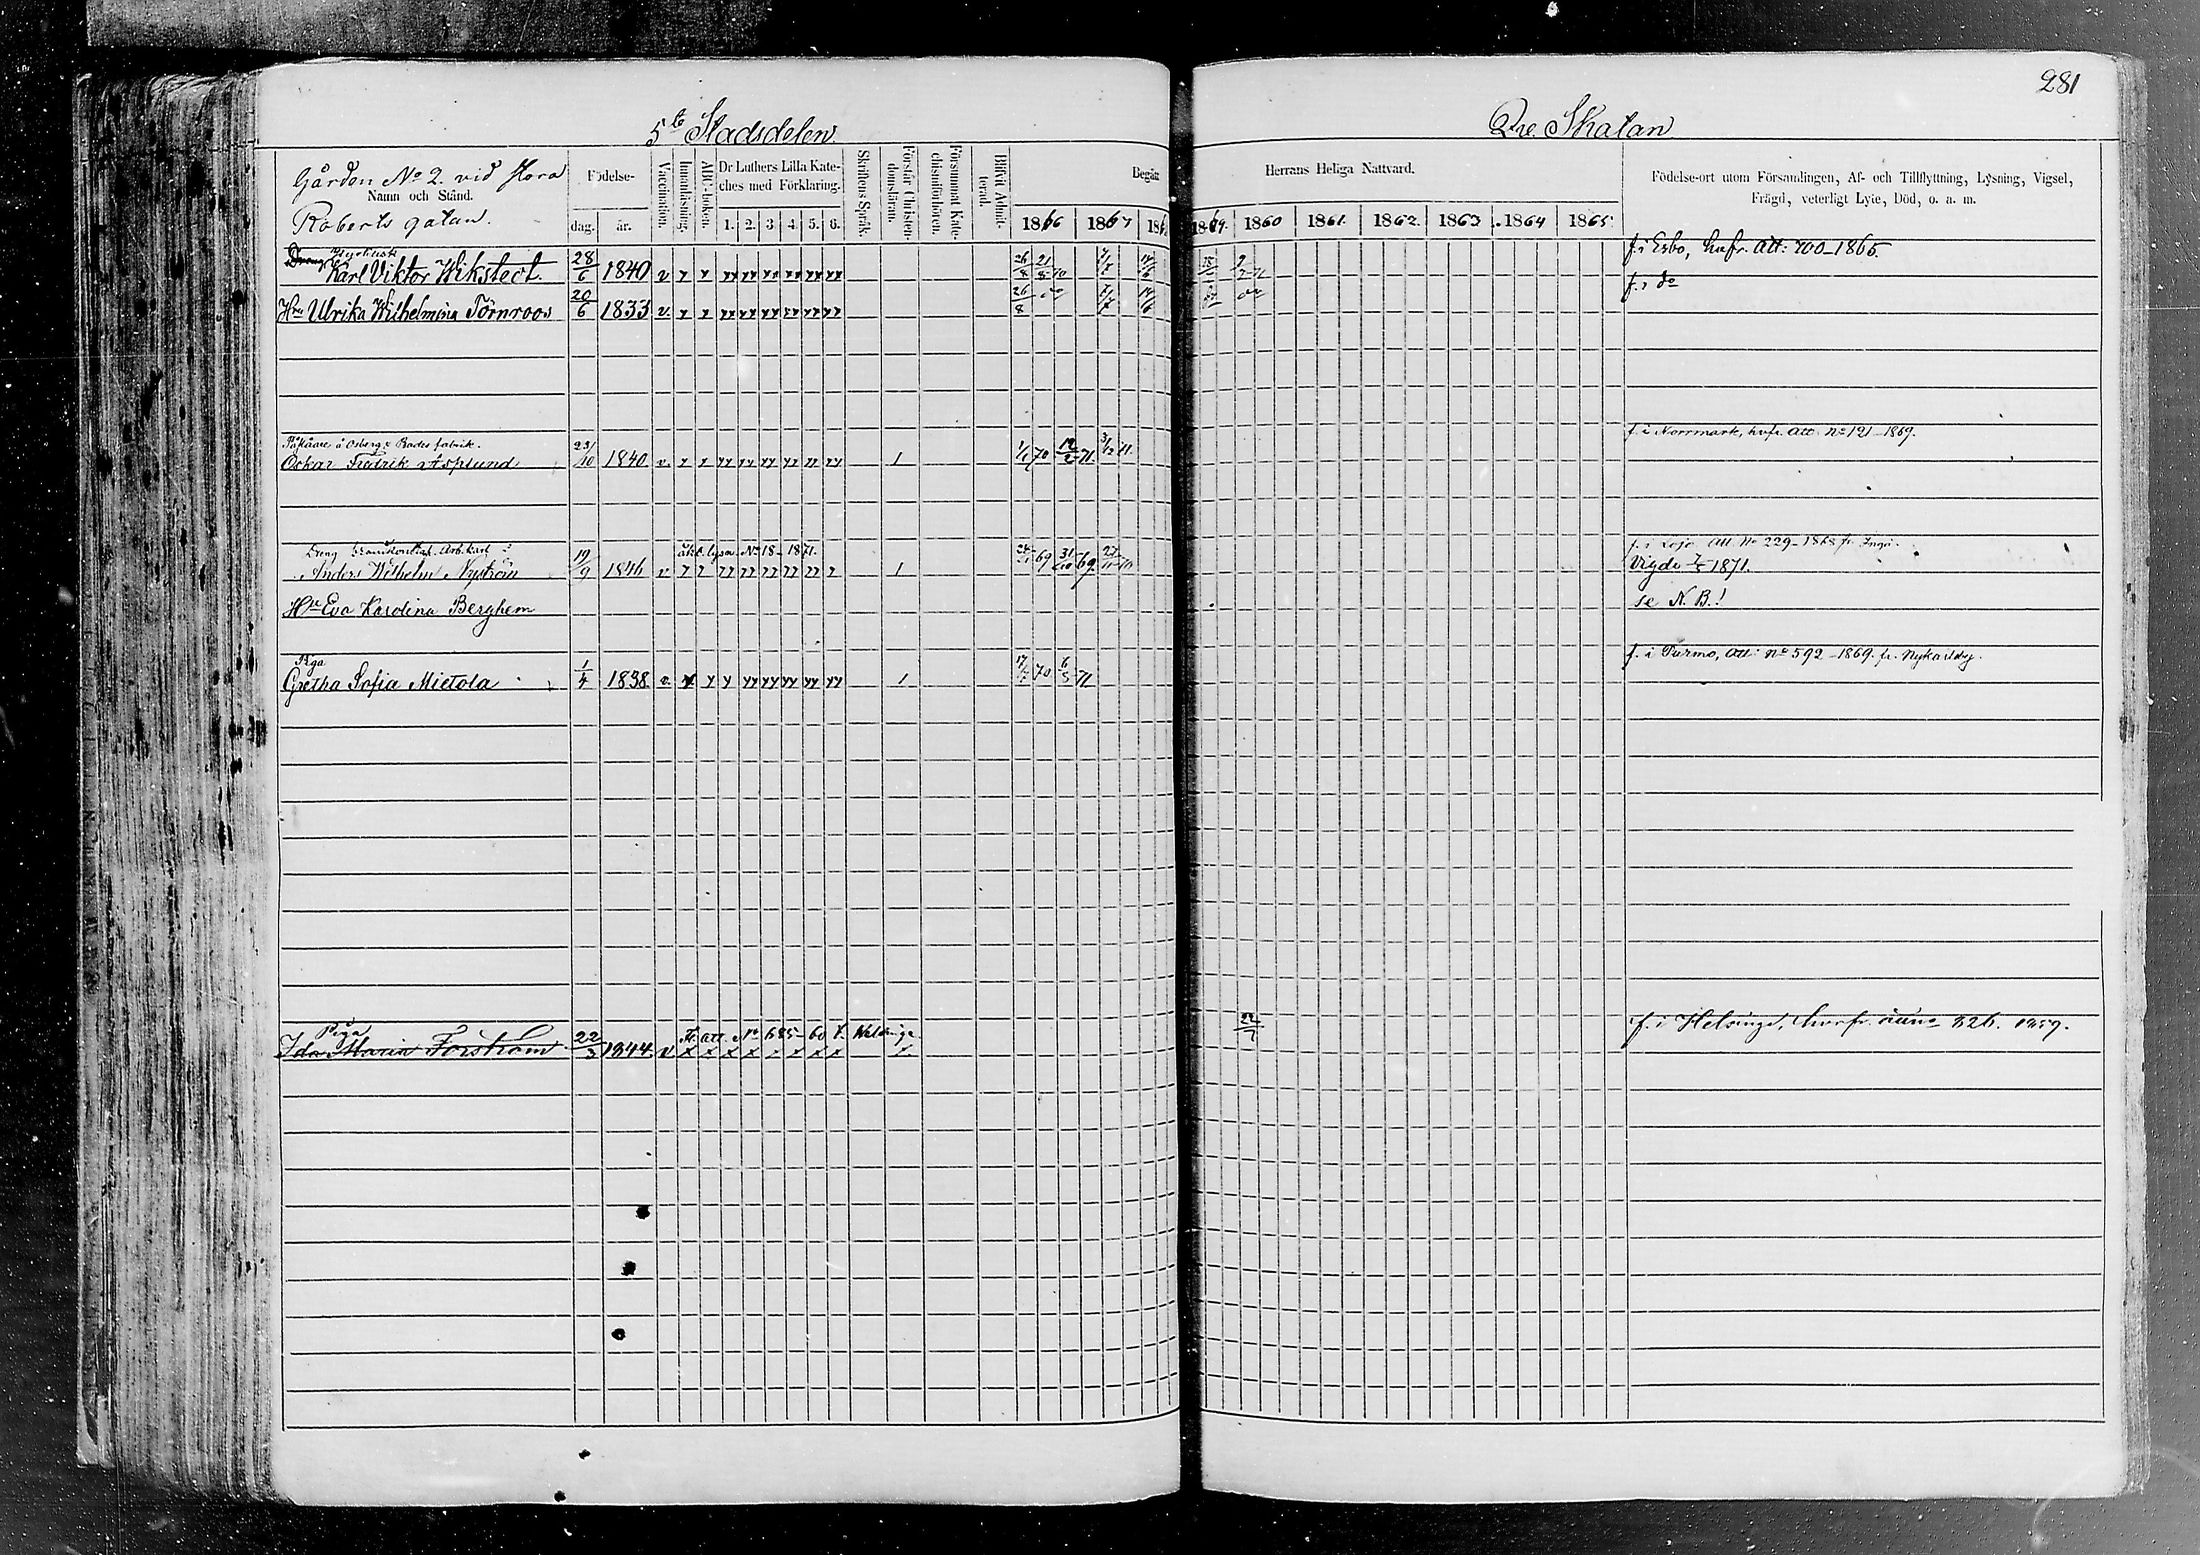 281
5te Stadsdelen.
Qre. Skatan
Gården No 2. vid Stora
Namn och Stånd.
Roberts gatan.
Födelse-
dag. år.
Vaccination.
Innanläsning.
ABC-boken.
Dr Luthers Lilla Kate-
ches med Förklaring.
1. 2. 3 4. 5. 6.
Skriftens Språk.
Förstår Christen-
domsläran.
Försummat Kate-
chismiförhören.
Blifvit Admit-
terad.
Begått Herrans Heliga Nattvard.
1866 1867 1869. 1860 1861. 1862. 1863 1864 1865.
Födelse-ort utom Församlingen, Af- och Tillflyttning, Lysning, Vigsel,
Frägd, veterligt Lyte, Död, o. a. m.
Dräng
Karl Viktor Wikstedt 28/6 1840 v f. i Esbo, hvfr. Att: 700-1865.
Hu Ulrika Wilhelmina Törnroos 20/6 1833 v. f. i do
fabrik.
Oskar Fredrik Asplund 23/10 1840 v. 1 1/1 70 12/2 71. f. i Norrmark, hvfr. Att. No 121-1869.
Dräng Arb. karl
lysn. No 18-1871.
Anders Wilhelm Nyström 19/9 1846 v 1 f. i Lojo Att. No 229-1868 fr. Ingå.
Vigde 1871.
Hu Eva Karolina Berghem se N.B.!
Piga
Gretha Sofia Mietola 1/4 1838 v. 1 f. i Purmo, Att: No 592-1869. fr. Nykarleby.
Piga
Att. No 685-60 t.
Ida Maria Forström 22/3 1844 v f. i Helsinge, hvfr. 326. 1859.